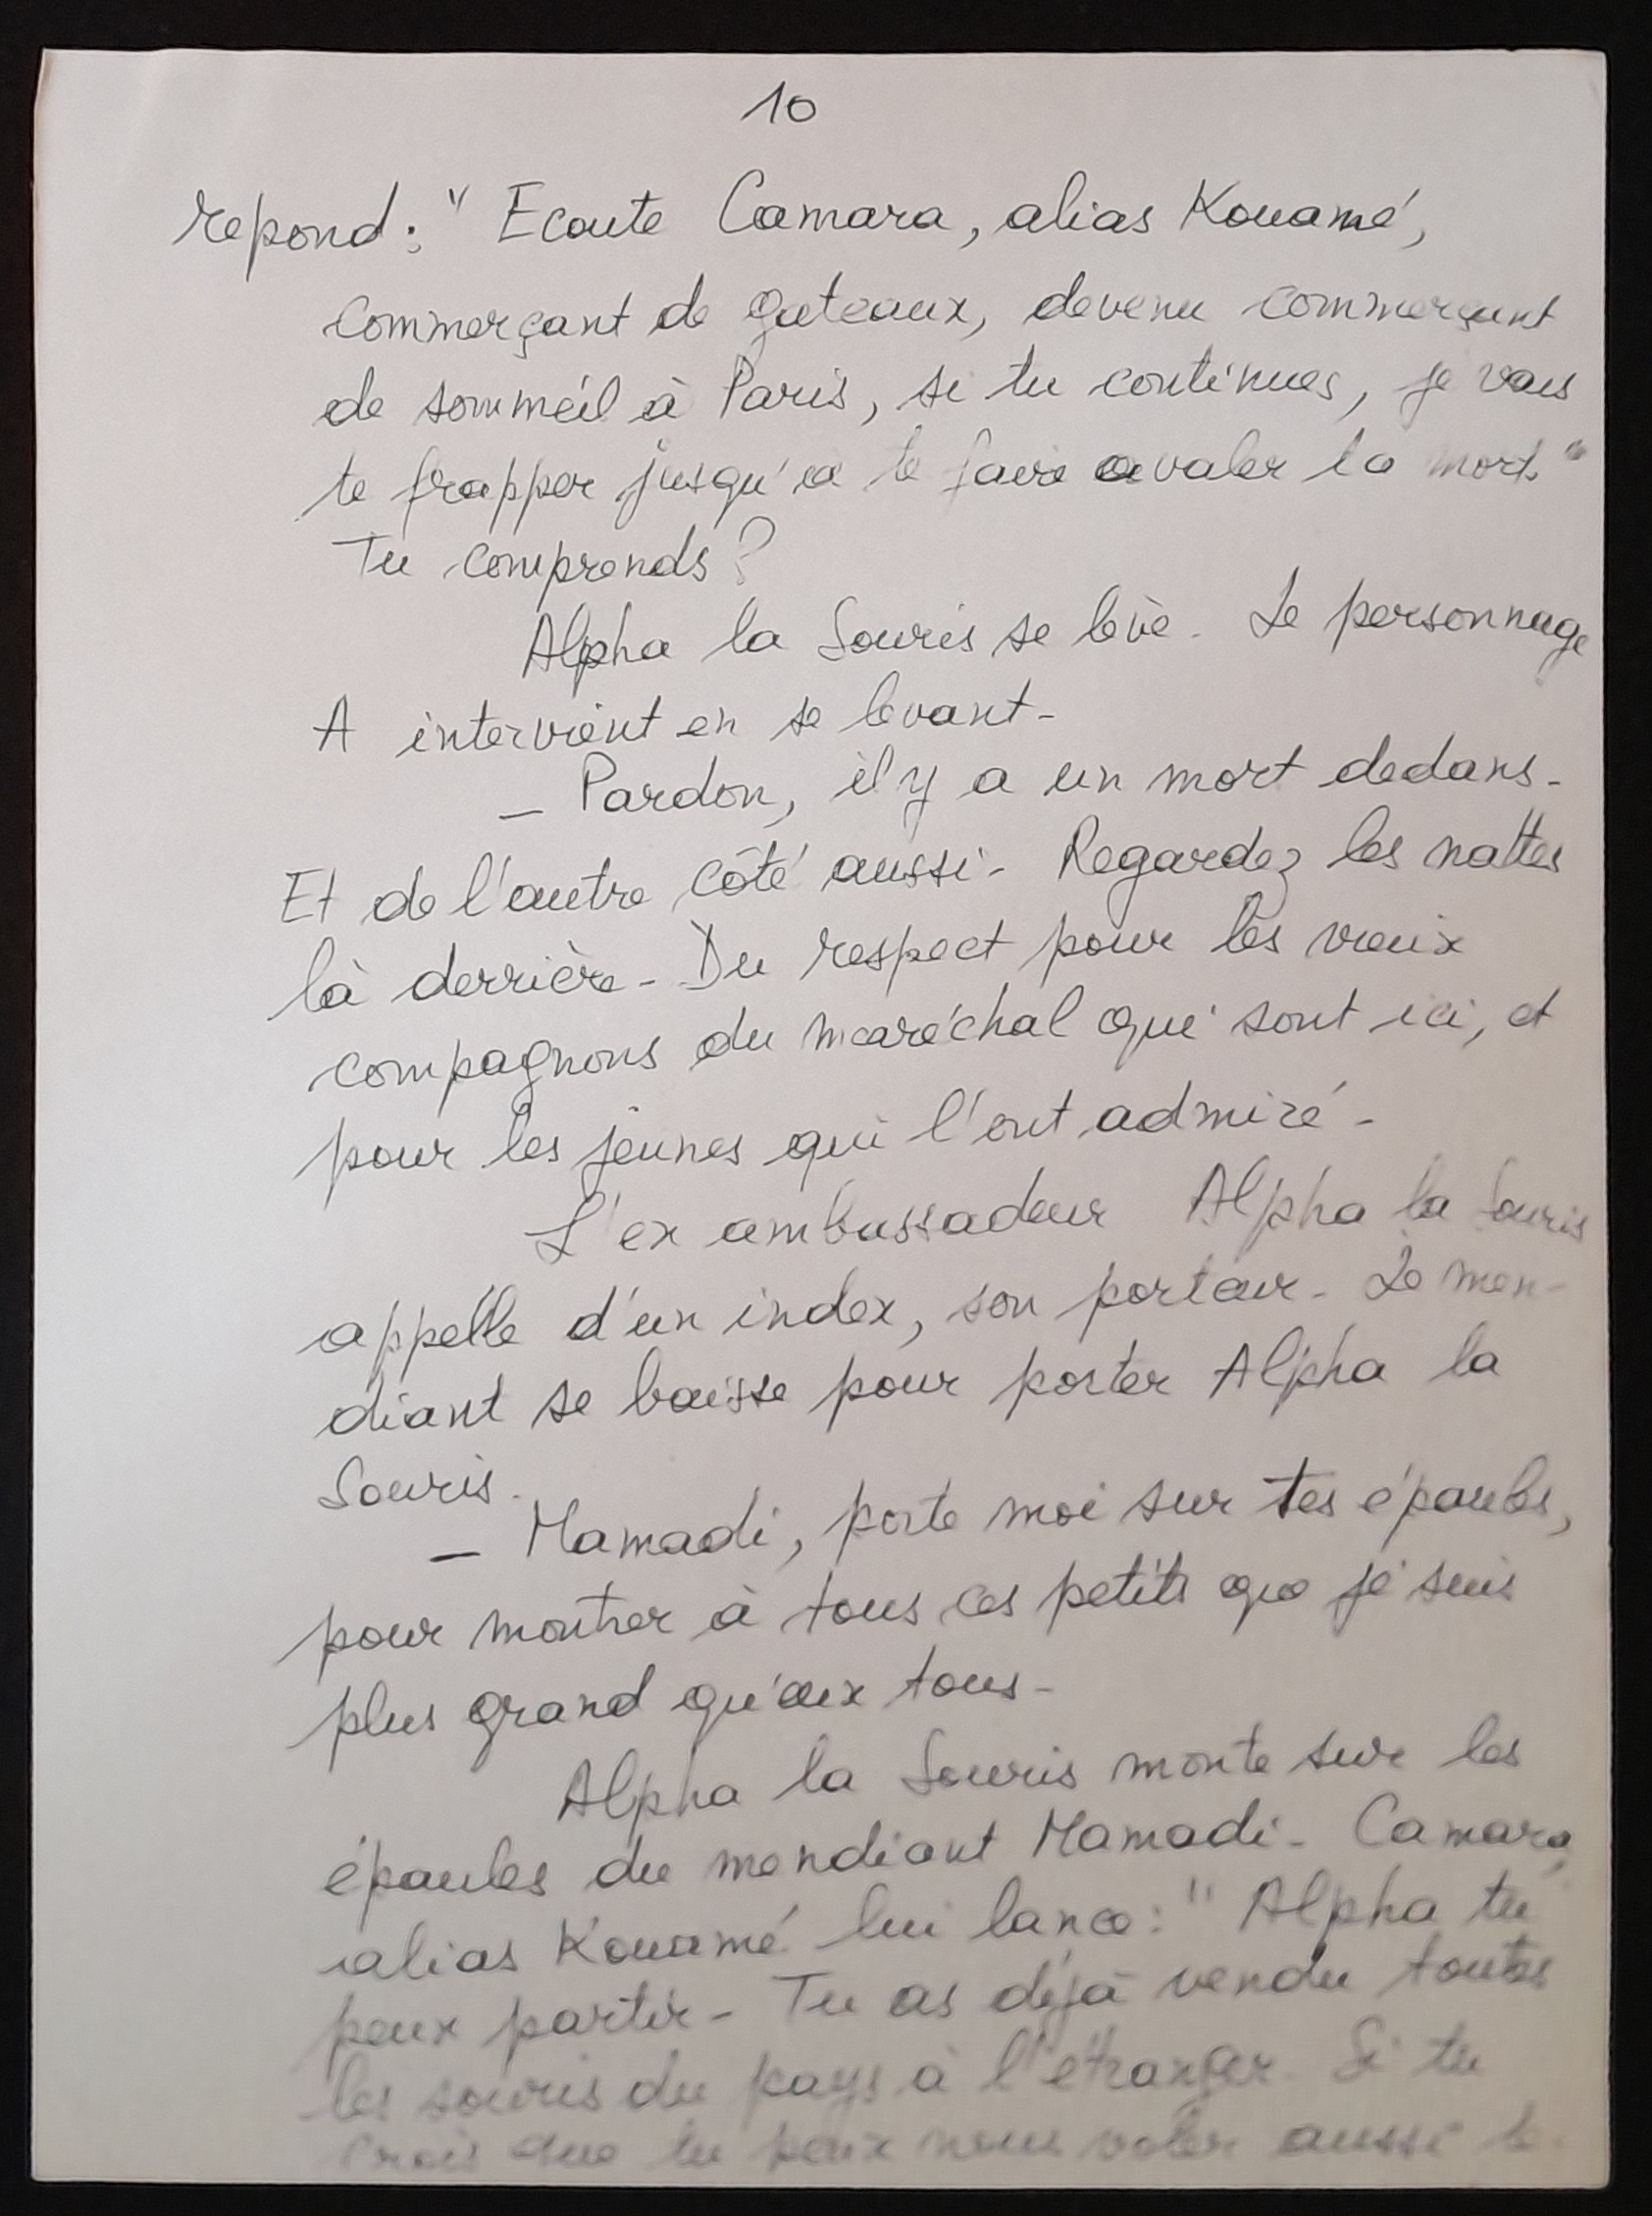 10
repond : " Ecoute Camara, alias Kouamé,
commerçant de gateaux, devenu commerçant
de sommeil à Paris, si tu continues, je vais
te frapper jusqu'a te faire avaler la mort. "
Tu comprends ?
Alpha la Souris se lève. Le personnage
A intervient en se levant -
- Pardon, il y a un mort dedans -
Et de l'autre côté aussi - Regardez les nattes
là derrière - Du respect pour les vieux
compagnons du maréchal qui sont ici, et
pour les jeunes qui l'ont admiré -
L'ex ambassadeur Alpha la Souris
appelle d'un index, son porteur - Le men-
diant se baisse pour porter Alpha la
Souris.
- Mamadi, porte moi sur tes épaules,
pour montrer à tous ces petits que je suis
plus grand qu'eux tous -
Alpha la Souris monte sur les
épaules du mendiant Mamadi - Camara,
alias Kouamé lui lance : " Alpha tu
peux partir - Tu as déjà vendu toutes
les souris du pays à l'étranger. Si tu
crois que tu peux nous voler aussi